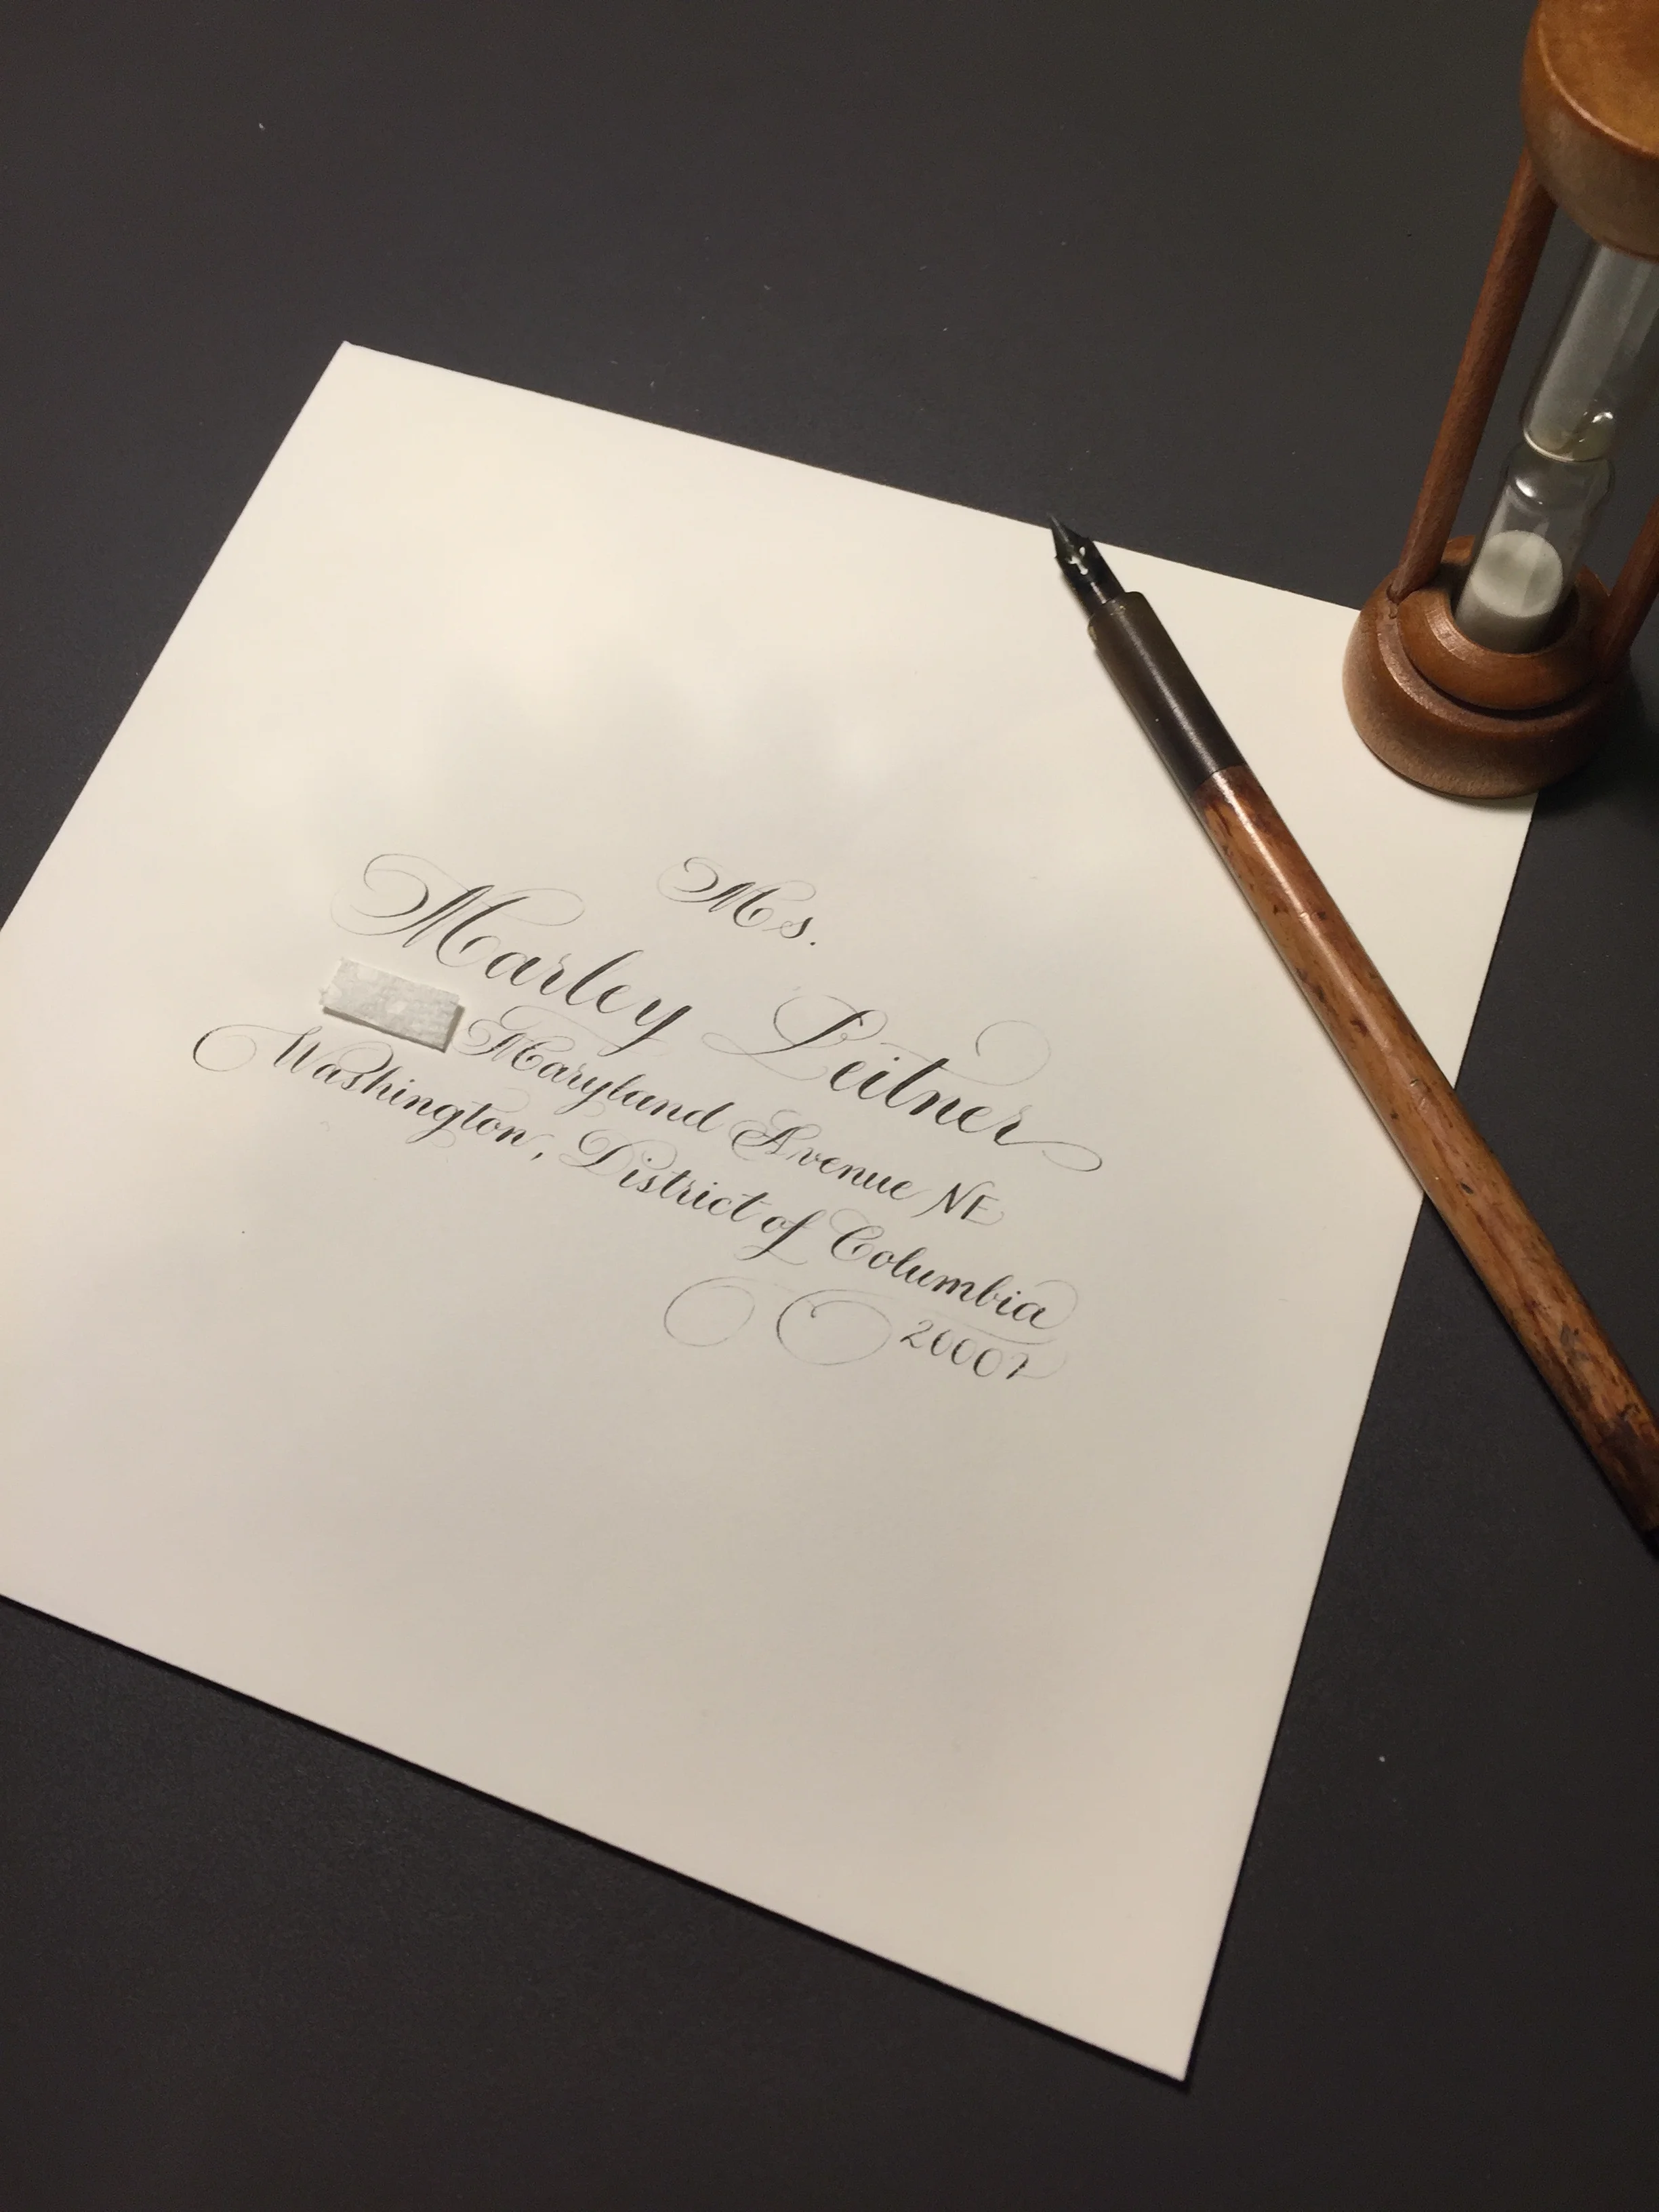 Ms.
Marley Leitner
Maryland Avenue NE
Washington, District of Columbia
20002